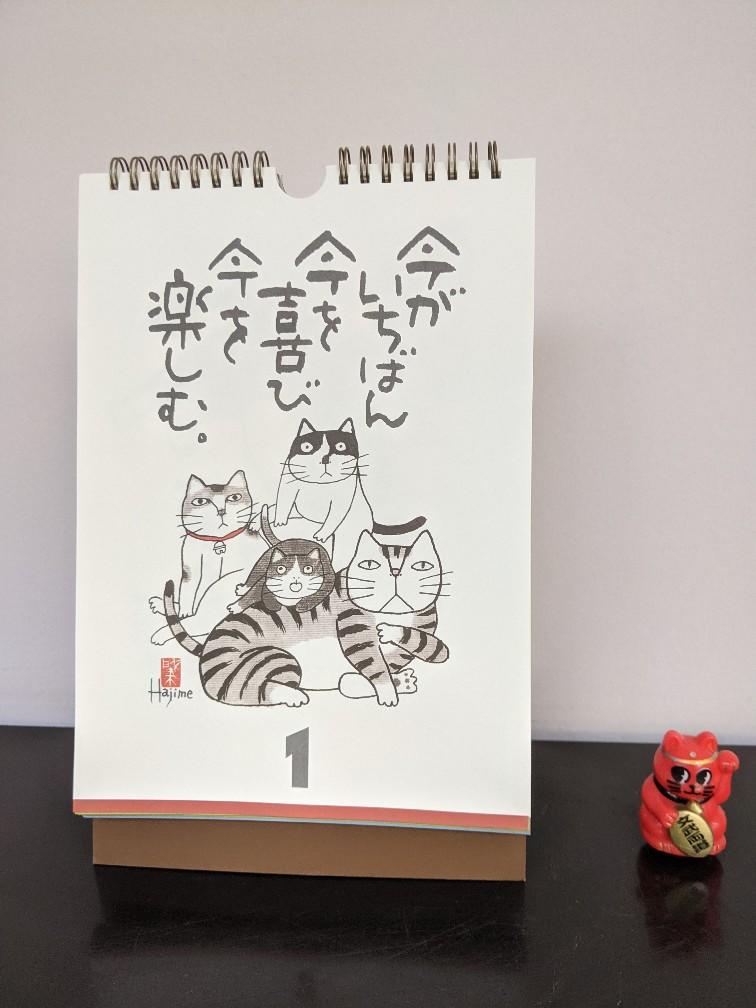 今が
いちばん
今を
喜び
今を
楽しむ。
Hajime
1
文武両道